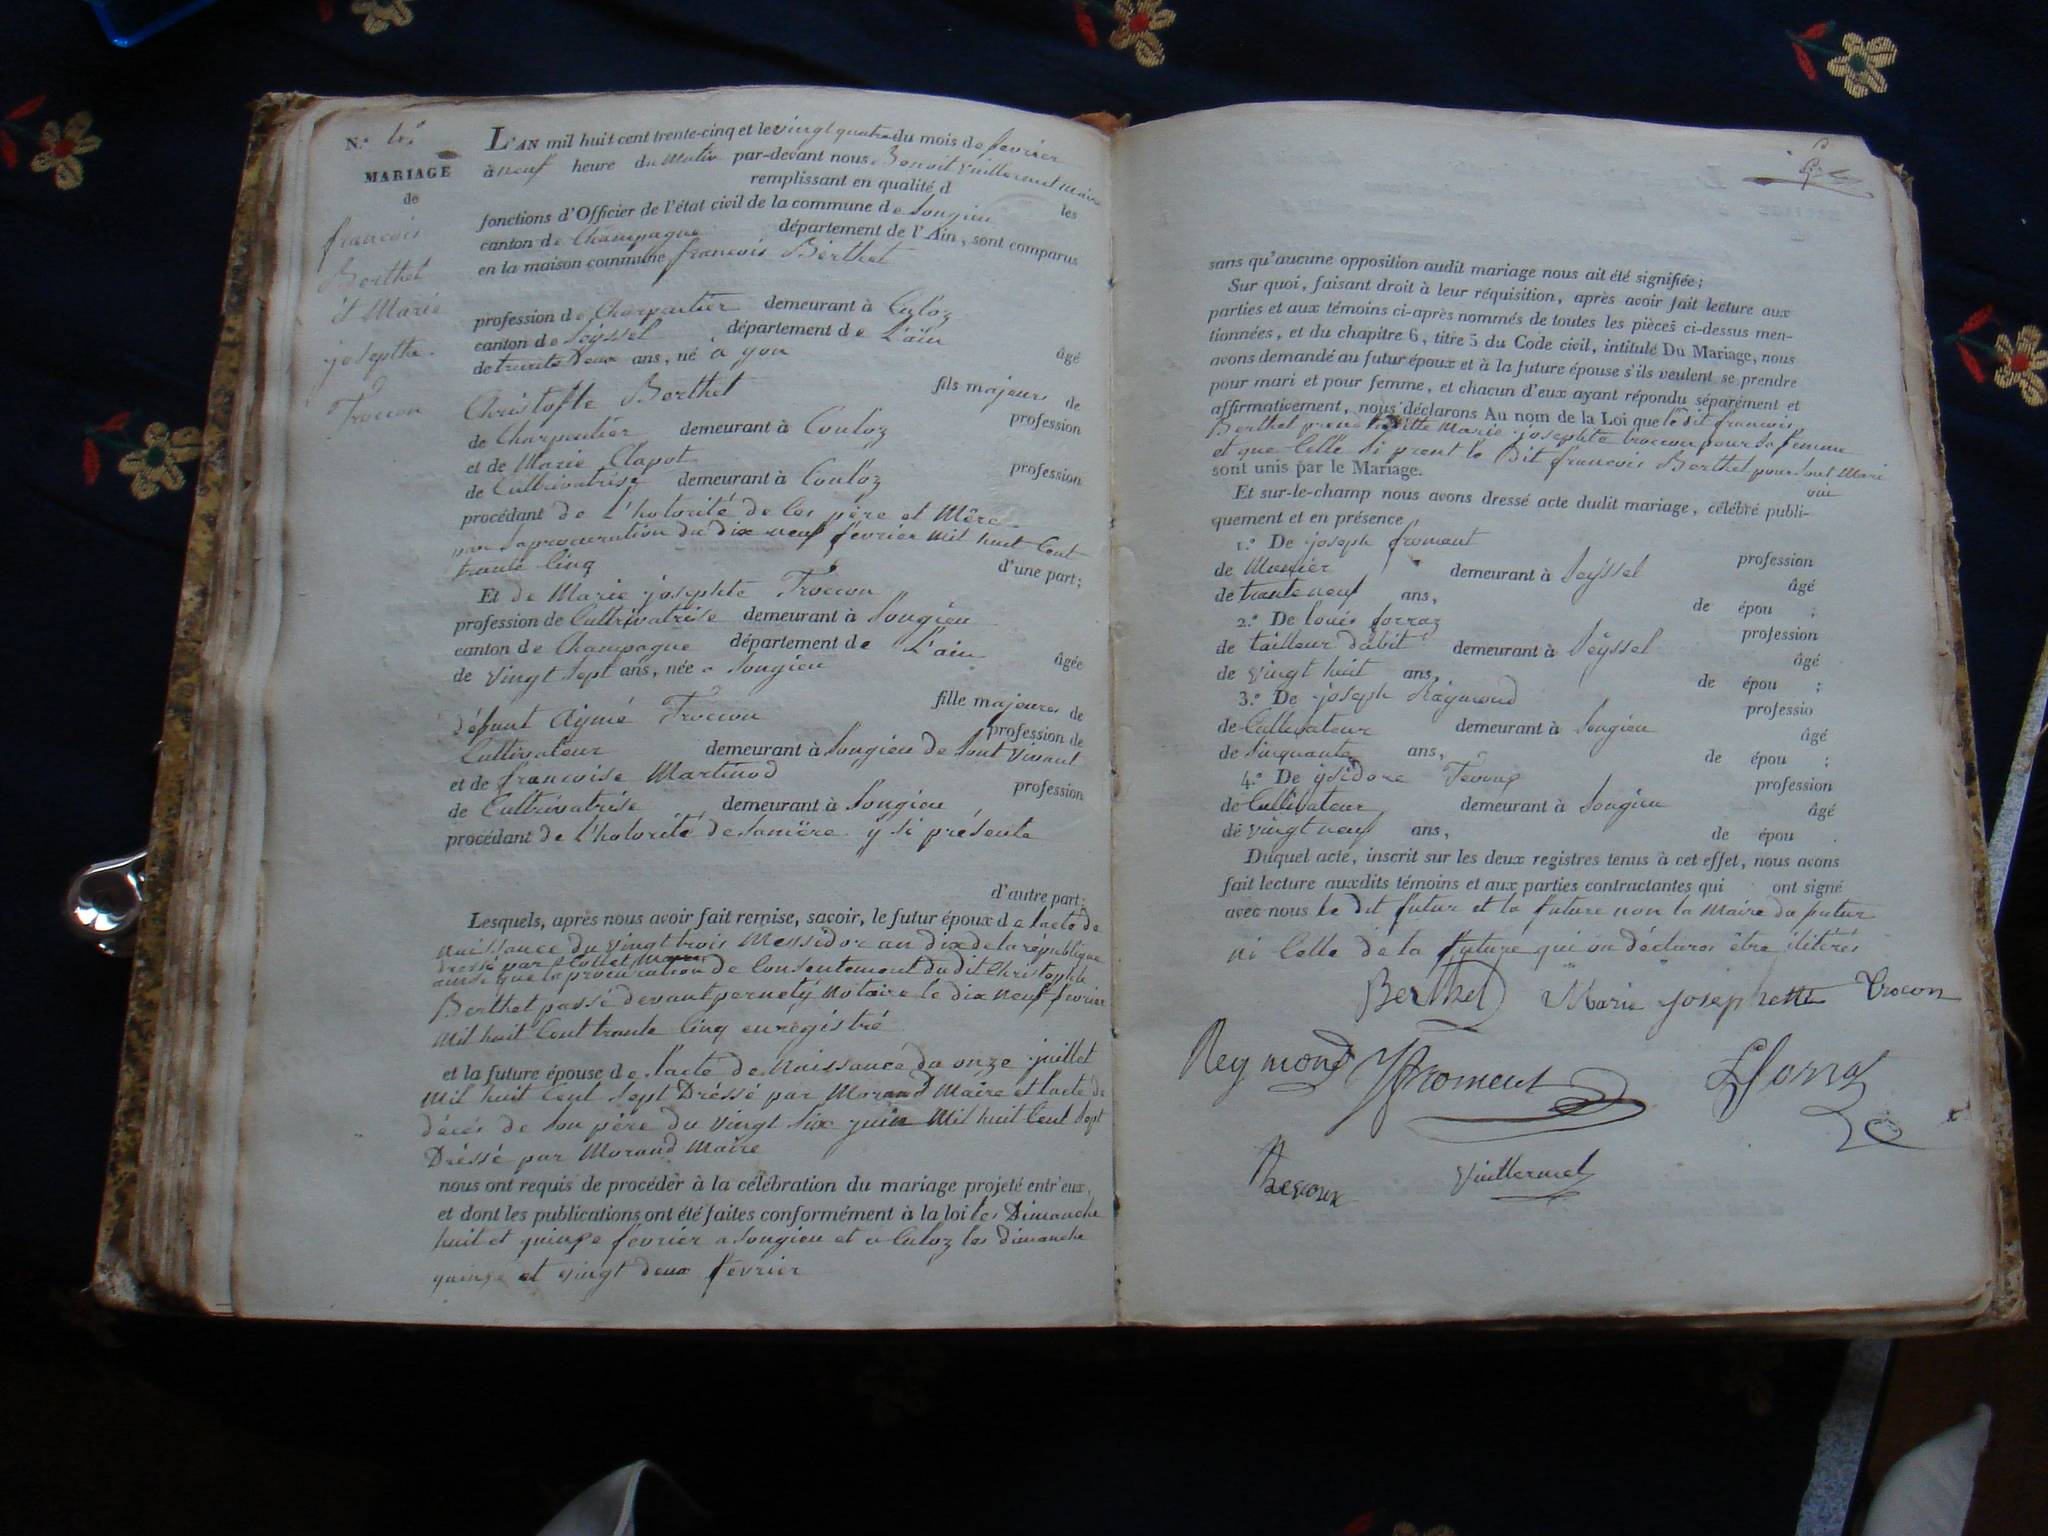 N.°
MARIAGE
de
francois
Berthet
et Marie
josephte
Troccon
L'AN mil huit cent trente-cinq et le vingt quatre du mois de fevrier
à neuf heure du Matin par-devant nous Benoit Vuillermet Maire
remplissant en qualité d les
fonctions d'Officier de l'état civil de la commune de Songieu
canton de Champagne département de l'Ain, sont comparus
en la maison commune francois Berthet
profession de Charpentier demeurant à Culoz
canton de Seyssel département de L'ain
âgé
de trente deux ans, né à
fils majeurs de
Christofle Berthet
profession
de Charpentier demeurant à Couloz
et de Marie Clapot
profession
de Cultrivatrise demeurant à Couloz
procédant de l'hotorité de Ces père et Mère
par procuration du dix neuf fevrier mil huit Cent
trante Cinq d'une part;
Et de Marie josephte Troccon
profession de Cultrivatrise demeurant à Songieu
canton de Champagne département de L'ain
âgée
de vingt sept ans, née a Songieu
fille majeures de
défunt Aymé Troccon
profession de
Cultivateur demeurant à Songieu de Sont Vivant
et de francoise Martinod
profession
de Cultrivatrise demeurant à Songieu
procédant de l'hotorité de Samère y si présente
d'autre part;
Lesquels, après nous avoir fait remise, savoir, le futur époux de lacte de
Naissance du vingt trois Messidor an dix de la république
dressé par Collet Maire
ainsi que la procuration de Consentement du dit Christophle
Berthet passé devant pernety Notaire le dix neuf fevrier
Mil huit Cent trante Cinq enregistré
et la future épouse de lacte de Naissance du onze juillet
Mil huit Cent Sept Dréssé par Morand Maire et lacte de
décés de Son père du vingt Six juin Mil huit Cent Sept
Dréssé par Morand Maire
nous ont requis de procéder à la célébration du mariage projeté entr'eux,
et dont les publications ont été faites conformément à la loi les Dimanche
huit et quinze fevrier a Songieu et a Culoz les dimanche
quinze et vingt deux fevrier
sans qu'aucune opposition audit mariage nous ait été signifiée;
Sur quoi, faisant droit à leur réquisition, après avoir fait lecture aux
parties et aux témoins ci-après nommés de toutes les pièces ci-dessus men-
tionnées, et du chapitre 6, titre 5 du Code civil, intitulé Du Mariage, nous
avons demandé au futur époux et à la future épouse s'ils veulent se prendre
pour mari et pour femme, et chacun d'eux ayant répondu séparément et
affirmativement, nous déclarons Au nom de la Loi que le dit francois
Berthet prend Marie josephte troccon pour Sa femme
et que Celle Si prent le Dit francois Berthet pour Sont Mari
sont unis par le Mariage.
Et sur-le-champ nous avons dressé acte dudit mariage, célébré publi-
quement et en présence
1.° De joseph froment
profession
de demeurant à Seyssel
âgé
de trante neuf ans,
de épou ;
2.° De louis forraz
profession
de tailleur dabit demeurant à Seyssel
âgé
de vingt huit ans,
de épou ;
3.° De joseph Raymond
professio
de Cultivateur demeurant à Songieu
âgé
de Sinquante ans,
de épou ;
4.° De ysidore
profession
de Cultivateur demeurant à Songieu
âgé
de vingt neuf ans,
de épou .
Duquel acte, inscrit sur les deux registres tenus à cet effet, nous avons
fait lecture auxdits témoins et aux parties contractantes qui ont signé
avec nous le dit futur et la future non la Maire du futur
ni Celle de la future qui on déclarés être ilitérés
Berthet Marie josephette Trocon
Reymond Froment
Vuillermet